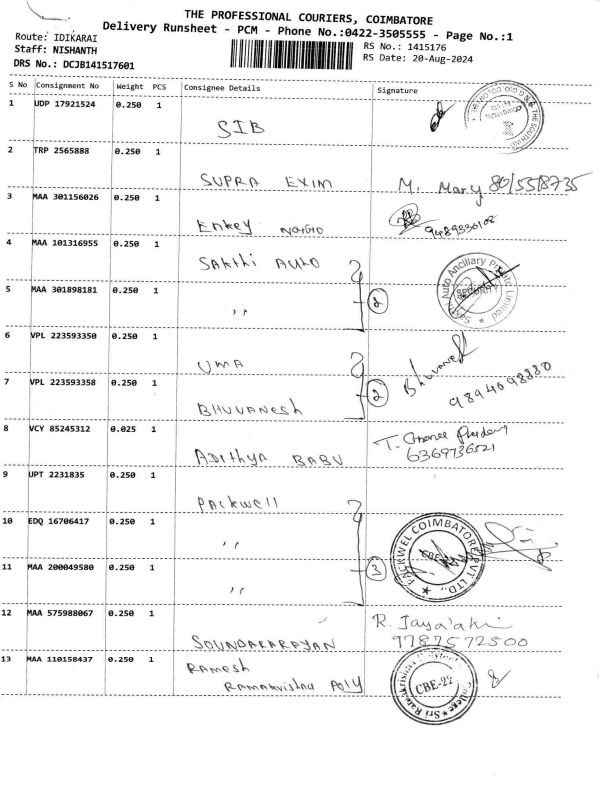 THE PROFESSIONAL COURIERS, COIMBATORE
Delivery Runsheet - PCM - Phone No.:0422-3505555 - Page No.:1
Route: IDIKARAI
Staff: NISHANTH
RS No.: 1415176
RS Date: 20-Aug-2024
DRS No.: DCJB141517601
S No Consignment No Weight PCS Consignee Details Signature
1 UDP 17921524 0.250 1 SIB
2 TRP 2565888 0.250 1 SUPRA EXIM M. Mary
3 MAA 301156026 0.250 1 Enkey
4 MAA 101316955 0.250 1 SAKthi AUTO
5 MAA 301898181 0.250 1 〃 2
Auto Ancillary Private Limited
SECURITY
6 VPL 223593350 0.250 1 UMA
7 VPL 223593358 0.250 1 BHUVANESH 2 9894098880
8 VCY 85245312 0.025 1 ADithyA BABU T.
6369736521
9 UPT 2231835 0.250 1 PACKwell
10 EDQ 16706417 0.250 1 〃
11 MAA 200049580 0.250 1 〃 3
PACKWEL COIMBATORE PVT LTD.,
CBE-
12 MAA 575988067 0.250 1 SOUNDARARAJAN R.
9787572500
13 MAA 110158437 0.250 1 RAMESH
RAMAKrishna Poly
CBE-22
College ★ Sri Ramakrishna